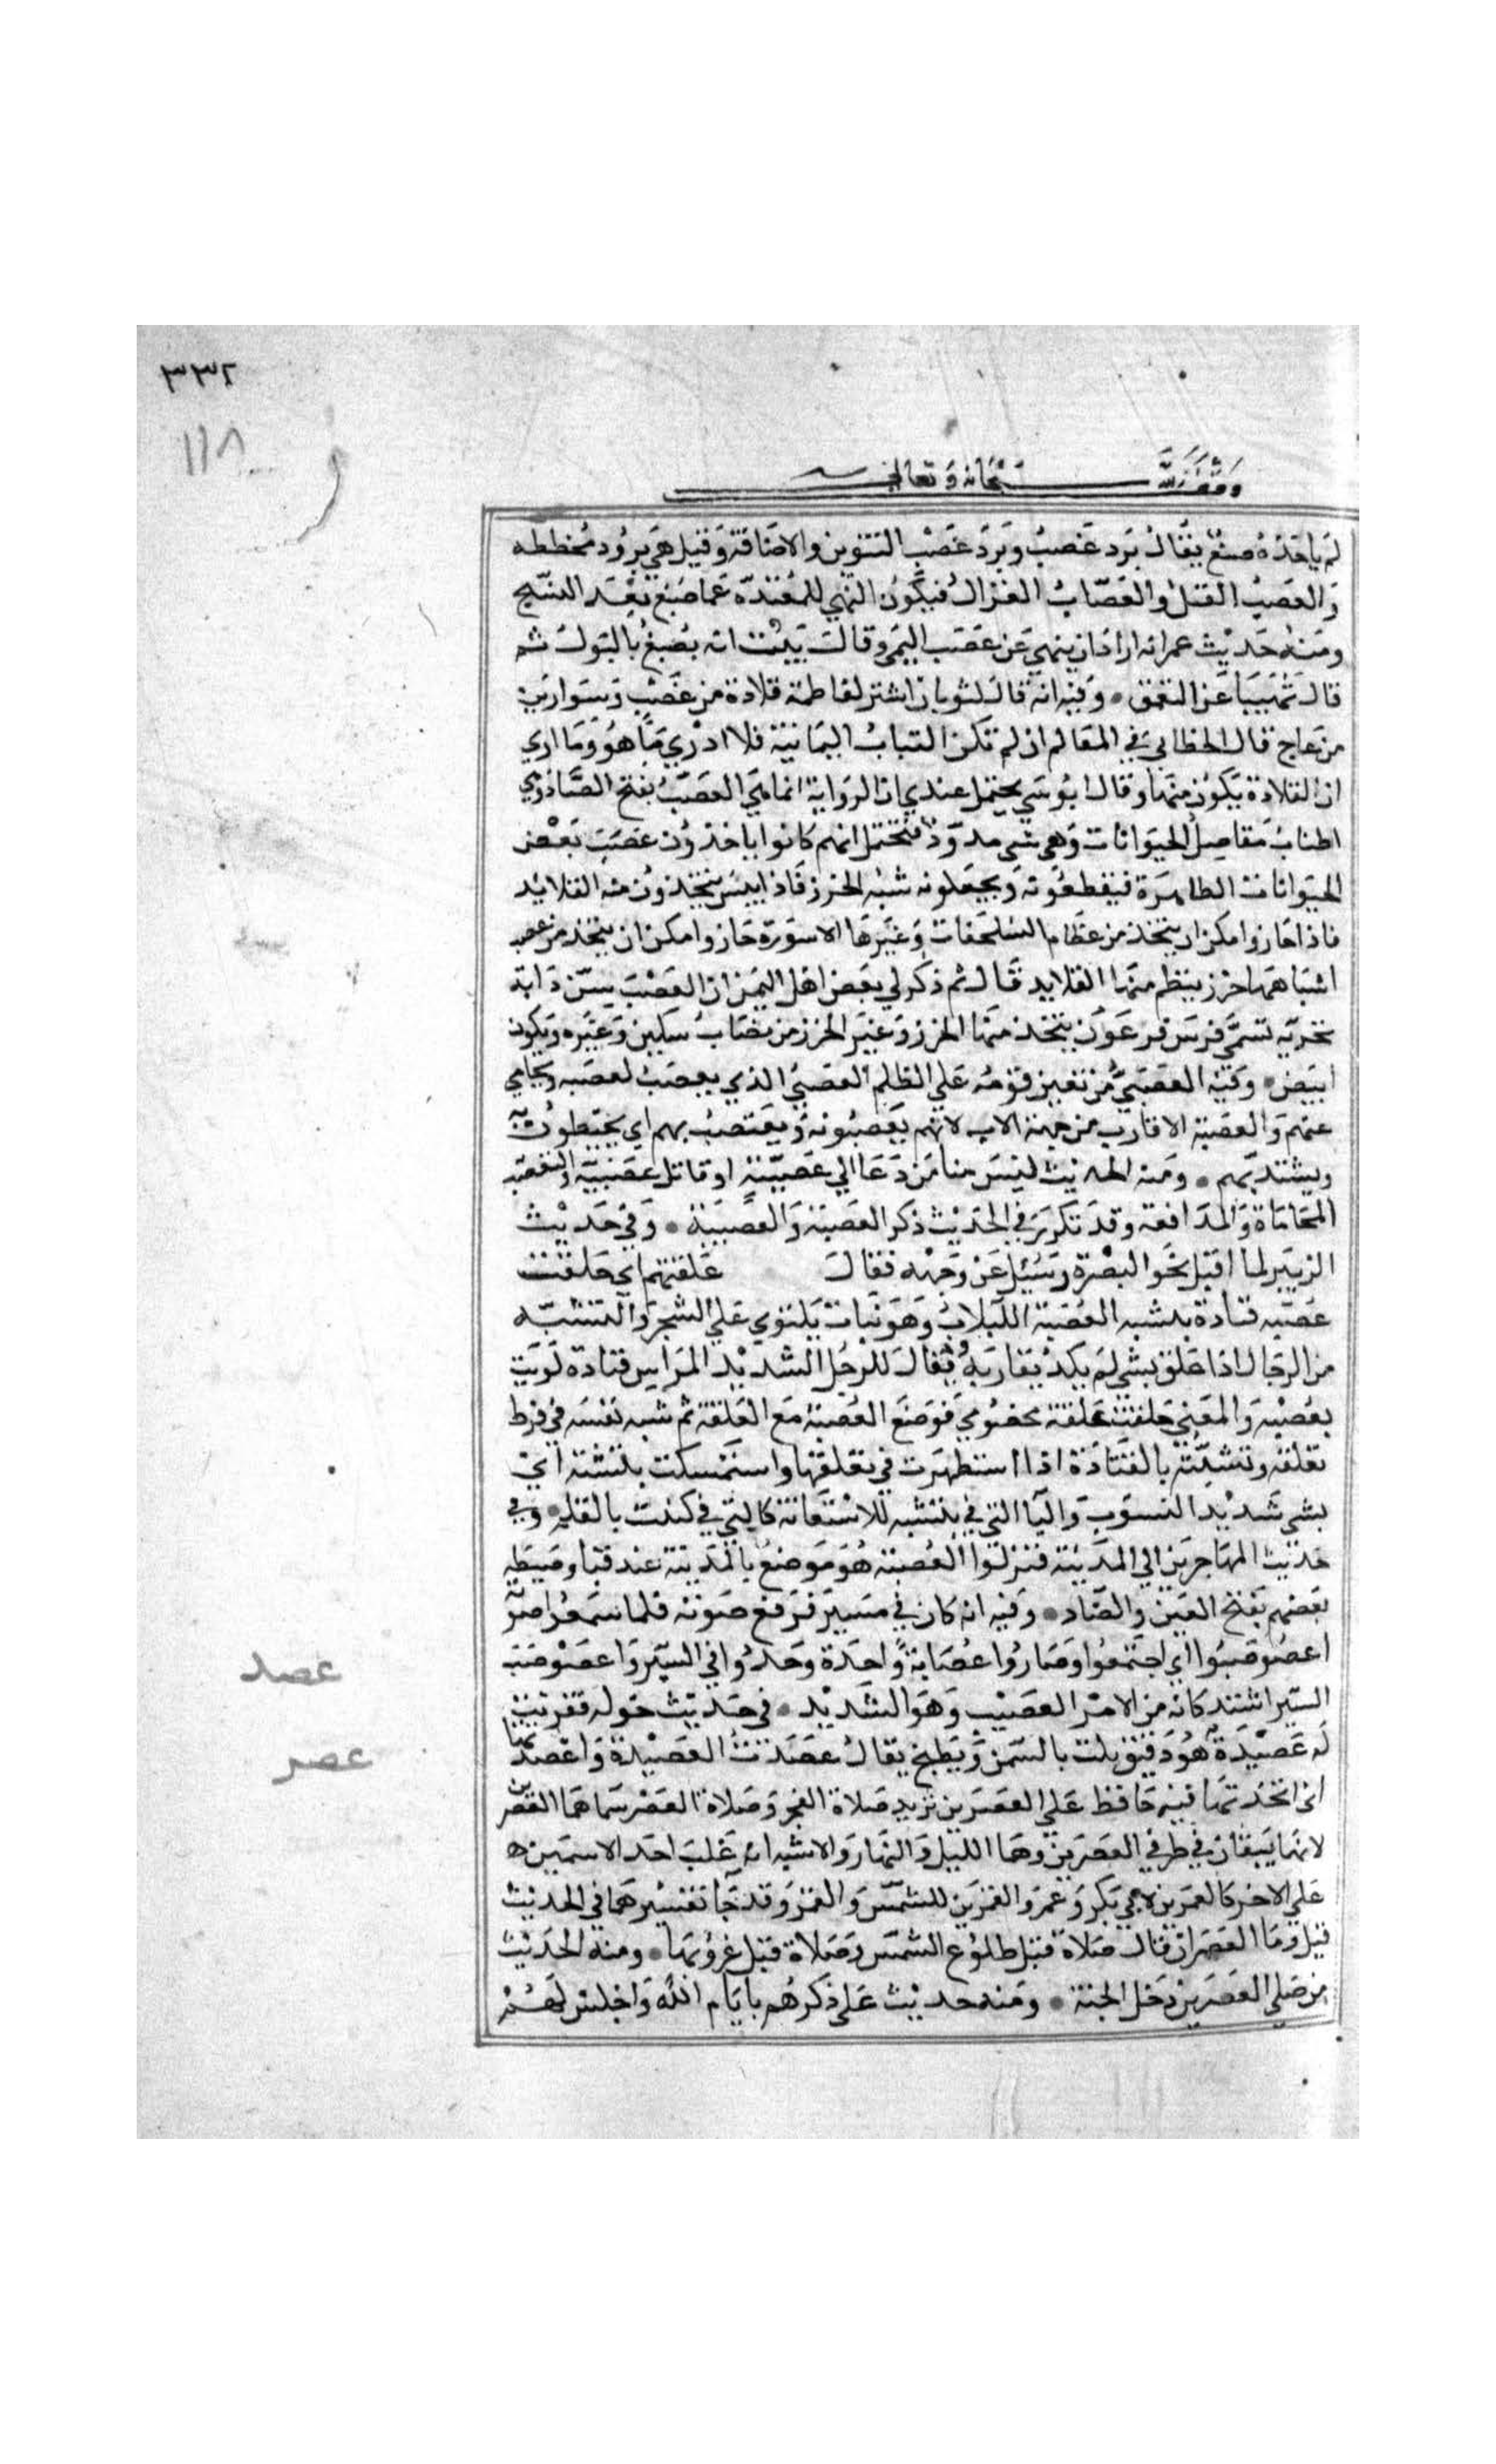 ٣٣٢
١١٨
وقف لله سبحانه وتعالى
لم ياخذه صبغ يقال برد عصب وبرد عصب التنوين والاضافة وقيل هي برود مخططه
والعصب الفتل والعصاب الغزال فيكون النهي للمعتدة عما صبغ بعد النسج
ومنه حديث عمر انه اراد ان ينهي عن عصب اليمن وقال نبئت انه يصبغ بالبول ثم
قال نهينا عن التعمق • وفيه انه قال لثوبان اشتر لفاطمة قلادة من عصب وسوارين
من عاج قال الخطابي في المعالم ان لم تكن الثياب اليمانية فلا ادري ما هو وما اري
ان القلادة يكون منها وقال ابو موسي يحتمل عندي ان الرواية انما هي العصب بفتح الصاد وهي
اطناب مفاصل الحيوانات وهي شي مدور فيحتمل انهم كانوا ياخذون عصب بعض
الحيوانات الطاهرة فيقطعونه ويجعلونه شبه الخرز فاذا يبس يتخذون منه القلائد
فاذا جاز وامكن ان يتخذ من عظام السلحفاة وغيرها الاسورة جاز وامكن ان يتخذ من عصب
اشباهها خرز ينظم منها القلايد قال ثم ذكر لي بعض اهل اليمن ان العصب سن دابة
بحرية تسمي فرس فرعون يتخذ منها الخرز وغير الخرز من نصاب سكين وغيره ويكون
ابيض • وفيه العصبي من يعين قومه علي الظلم العصبي الذي يعصب لعصبه ويحامي
عنهم والعصبة الاقارب من جهة الاب لانهم يعصبونه ويعتصب بهم اي يحيطون به
ويشتد بهم • ومنه الحديث ليس منا من دعا الي عصبية او قاتل عصبية والتعصب
المحاماة والمدافعة وقد تكرر في الحديث ذكر العصبة والعصبية • وفي حديث
الزبير لما اقبل نحو البصرة وسئل عن وجهه فقال علقتهم اني خلقت
عصبة قتادة بنشبه العصبة اللبلاب وهو نبات يلتوي علي الشجر والنشبه
من الرجال اذا علق بشي لم يكد يفارقه ويقال للرجل الشديد المراس قتادة لويت
بعصبة والمعني خلقت علقة لخصومي فوضع العصبة مع العلقة ثم شبه نفسه في فرط
تعلقه وتشبثه بالقتادة اذا استظهرت في تعلقها واستمسكت بنشبة اي
بشي شديد النشوب والبا التي في بنشبه للاستعانة كالتي في كتبت بالقلم • وفي
حديث المهاجرين الي المدينة فنزلوا العصبة هو موضع بالمدينة عند قبا وضبطه
بعضهم بفتح العين والصاد • وفيه انه كان في مسير فرفع صوته فلما سمعوا صوته
اعصوصبوا اي اجتمعوا وصاروا عصابة واحدة وجدوا في السير واعصوصب
السير اشتد كانه من الامر العصيب وهو الشديد • في حديث خوله فقربت
له عصيدة هو دقيق يلت بالسمن ويطبخ يقال عصدت العصيدة واعصدتها
اي اتخذتها فيه حافظ علي العصرين يريد صلاة الفجر وصلاة العصر سماهما العصرين
لانهما يقعان في طرفي العصرين وهما الليل والنهار والاشبه انه غلب احد الاسمين
علي الاخر كالعمرين لابي بكر وعمر والقمرين للشمس والقمر وقد جا تفسيرهما في الحديث
قيل وما العصران قال صلاة قبل طلوع الشمس وصلاة قبل غروبها • ومنه الحديث
من صلي العصرين دخل الجنة • ومنه حديث علي ذكرهم بايام الله واجلس لهم
عصد
عصر